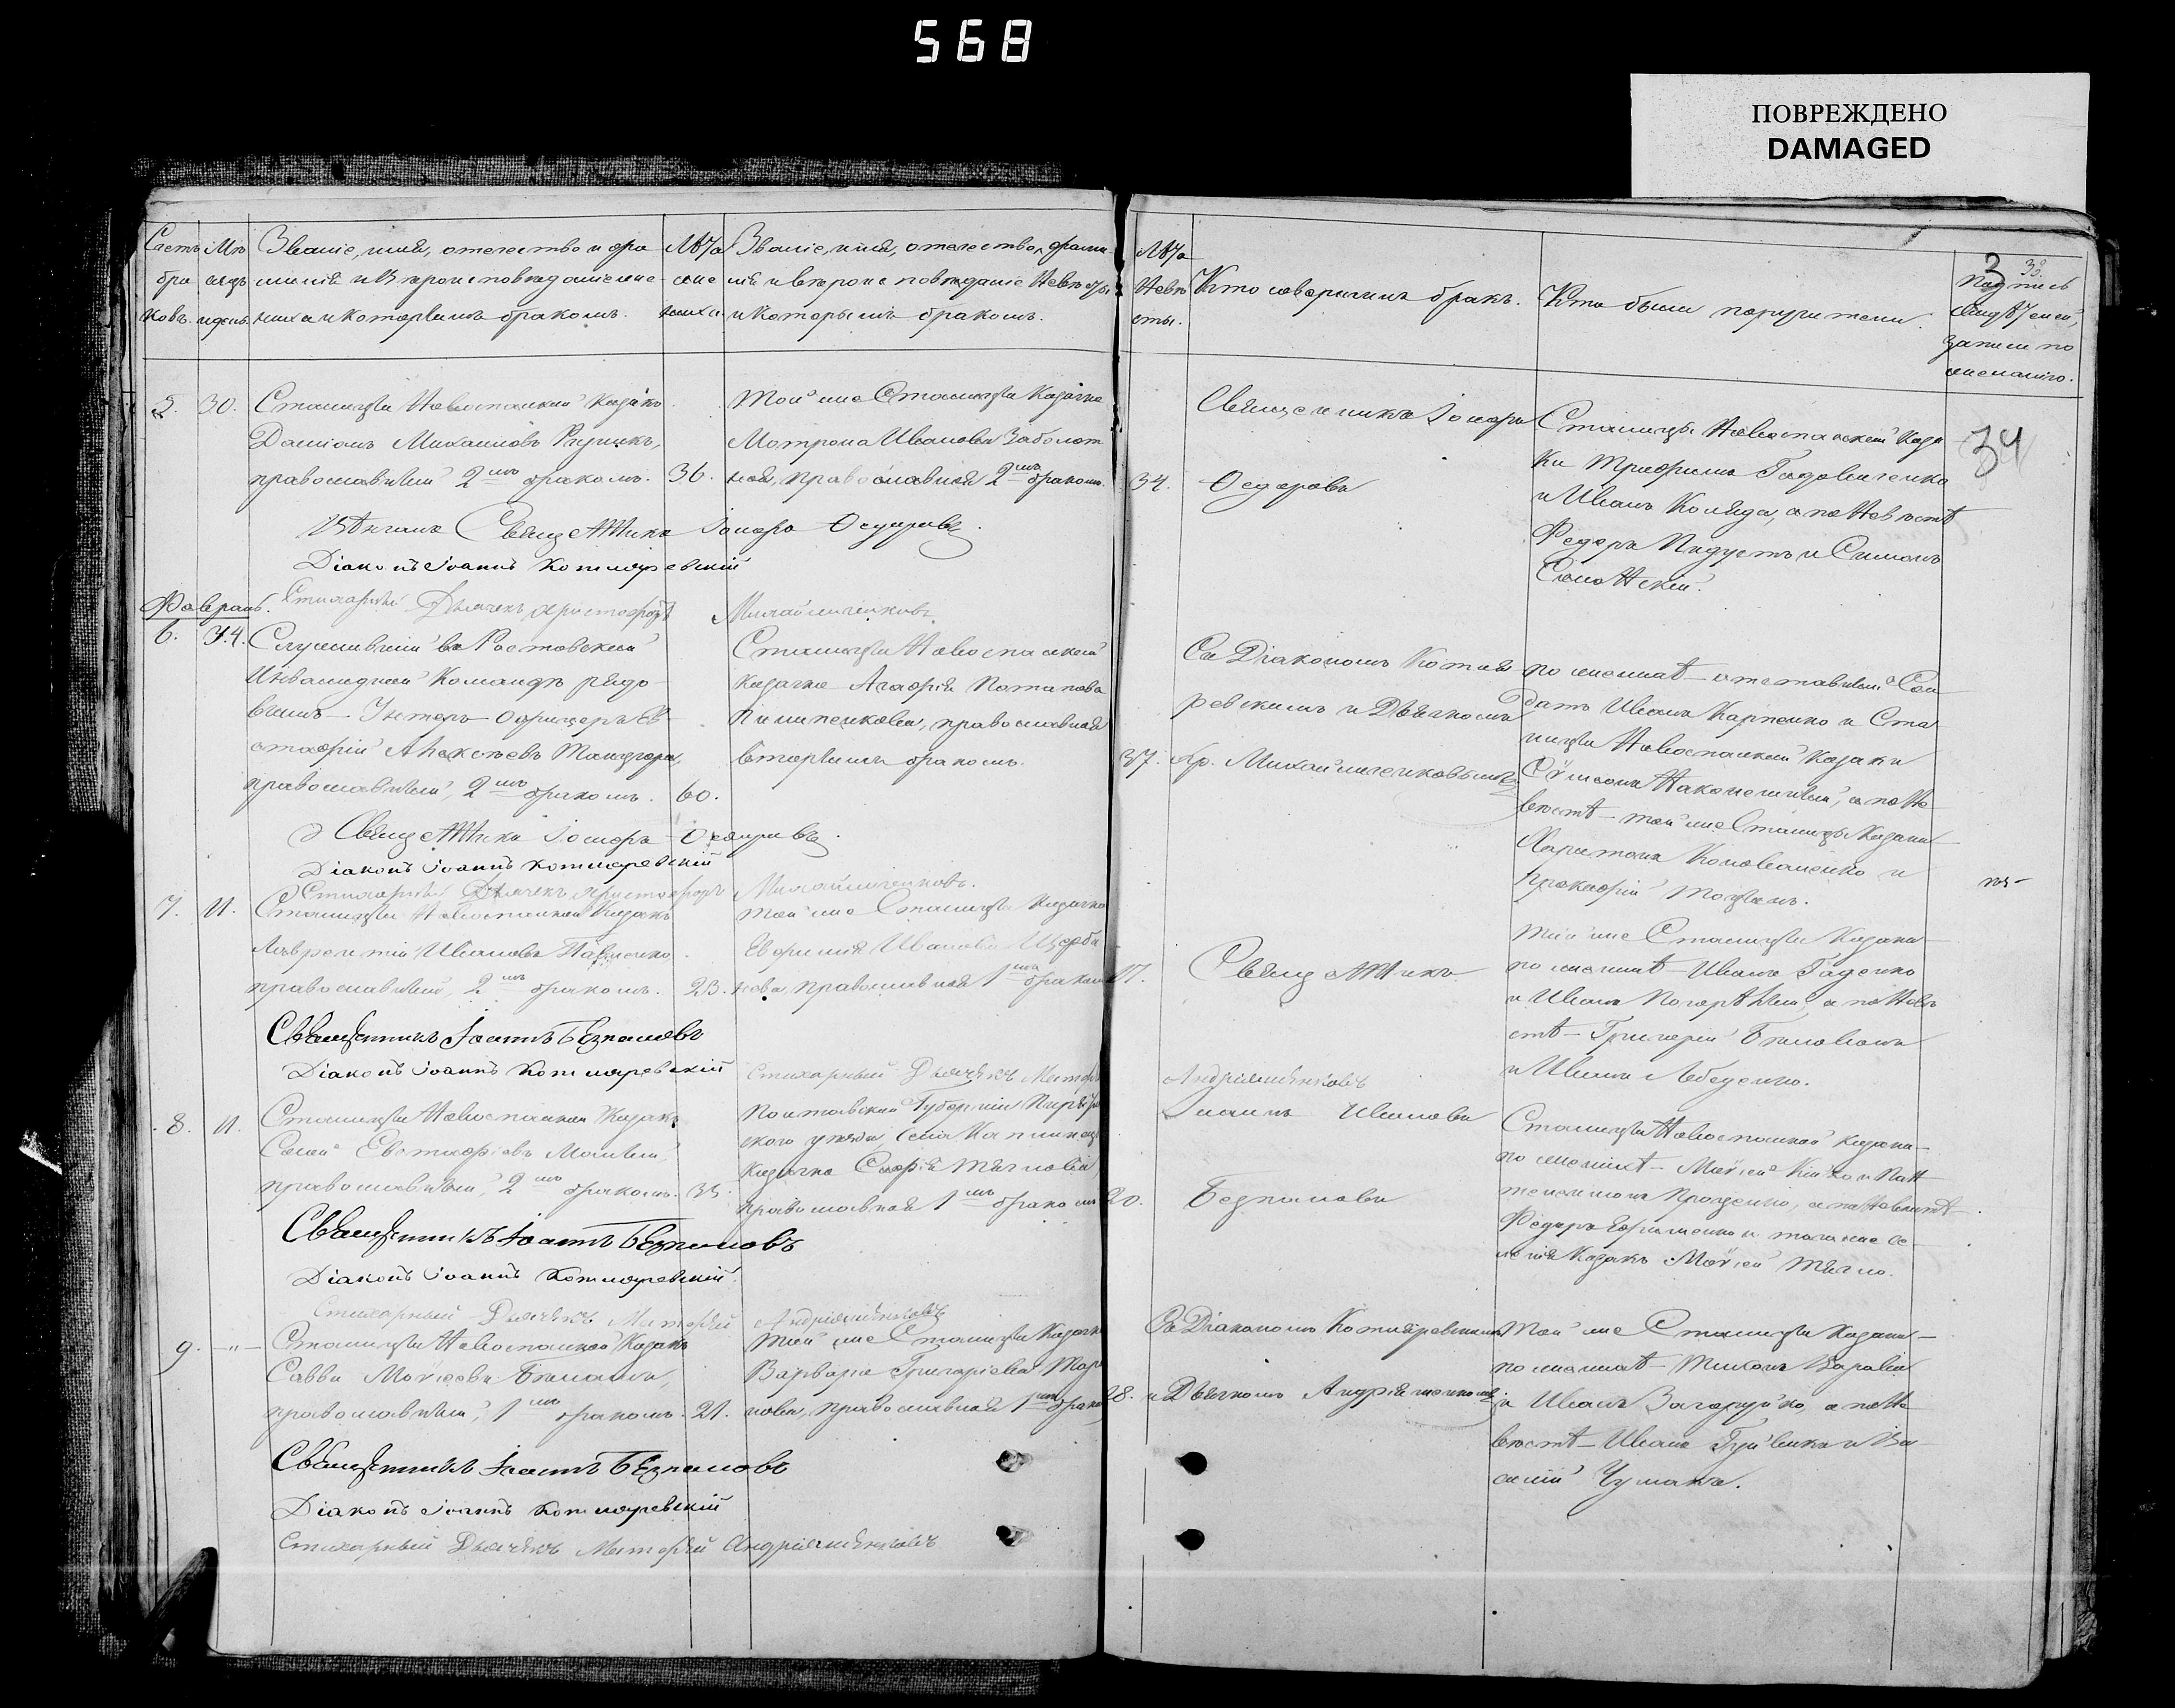 568
ПОВРЕЖДЕНО
DAMAGED
Счетъ бра ковъ.
Мѣ сяцъ и день.
Званіе, имя, отечество и фа
милія и Вѣроисповѣданіе же
ниха и которымъ бракомъ.
Лѣта
жениха.
Званіе, имя, отечество, фами
лія и вѣроисповѣданіе Невѣсты
и которымъ бракомъ.
Лѣта
Невѣ
сты.
Кто совершилъ бракъ.
Кто были поручители.
3
Подпись
свидѣтелей,
записи по
желанію.
34
30.
Станицы Новоспаской Казакъ
Даміанъ Михаиловъ
православный 2мъ бракомъ.
36.
Той же Станицы Казачка
Матрона Иванова Заболот
ная, православная 2мъ бракомъ.
34.
Священникъ Іосифъ
Станицы Новоспаской Каза
ки Трифонъ
и Иванъ Коляда, а по Невѣстѣ
Федоръ и Симонъ
Вѣнчалъ Священникъ Іосифъ
Діаконъ Іоаннъ Котляревскій
Стихарный Дьячекъ Христофоръ Михайличенковъ.
Февраль.
6.
4.
Служившій въ Ростовской
Инвалидной Командѣ рядо
вымъ – Унтеръ-Офицеръ Ев
стафій Алексѣевъ
православный, 2мъ бракомъ.
60.
Станицы Новоспаской
казачка Агафія Потапова
Пилипенкова, православная
вторымъ бракомъ.
37.
Съ Діакономъ Котля
ревскимъ и Дьячкомъ
Хр. Михайличенковымъ
по женихѣ – отставный Сол
датъ Иванъ Карпенко и Ста
ницы Новоспаской Казакъ
а по Не
вѣстѣ – той же Станицы Казаки
Харитонъ Коноваленко и
Прокофій
Священникъ Іосифъ
Діаконъ Іоаннъ Котляревскій
Стихарный Дьячекъ Христофоръ Михайличенковъ.
7.
11.
Станицы Новоспаской Казакъ
Лаврентій Ивановъ Павленко
православный, 2мъ бракомъ.
23.
Той же Станицы Казачка
Евфимія Иванова Щерба
кова, православная 1мъ бракомъ
17.
Священникъ
Той же Станицы Казаки
по женихѣ – Иванъ
и Иванъ а по Невѣ
стѣ – Григорій
и Иванъ Лебеденко.
Священникъ Іоаннъ Безпаловъ
Діаконъ Іоаннъ Котляревскій
Стихарный Дьячекъ Матфей
Андріященковъ
8.
11.
Станицы Новоспаской Казакъ
Евстафіевъ
православный, 2мъ бракомъ.
35.
Полтавской Губерніи
ского уѣзда, села
казачка Софія Тягнова
православная 1мъ бракомъ
20.
Іоаннъ Ивановъ
Безпаловъ
Станицы Новоспаской казаки
по женихѣ – Моѵсей и Пан
телеимонъ Проценко, а по Невѣстѣ
Федоръ Ефименко и того же се
ленія Казакъ Моѵсей Тягно.
Священникъ Іоаннъ Безпаловъ
Діаконъ Іоаннъ Котляревскій
Стихарный Дьячекъ Матфей Андріященковъ
9.
–"–
Станицы Новоспаской Казакъ
Савва Моѵсеевъ
православный, 1мъ бракомъ.
21.
Той же Станицы Казачка
Варвара Григоріева
нова, православная 1мъ бракомъ
18.
Съ Діакономъ Котляревскимъ
и Дьячкомъ
Той же Станицы Казаки –
по женихѣ – Тихонъ
и Иванъ Загоруйко, а по Не
вѣстѣ – Иванъ и Ва
силій Чумакъ.
Священникъ Іоаннъ Безпаловъ
Діаконъ Іоаннъ Котляревскій
Стихарный Дьячекъ Матфей Андріященковъ